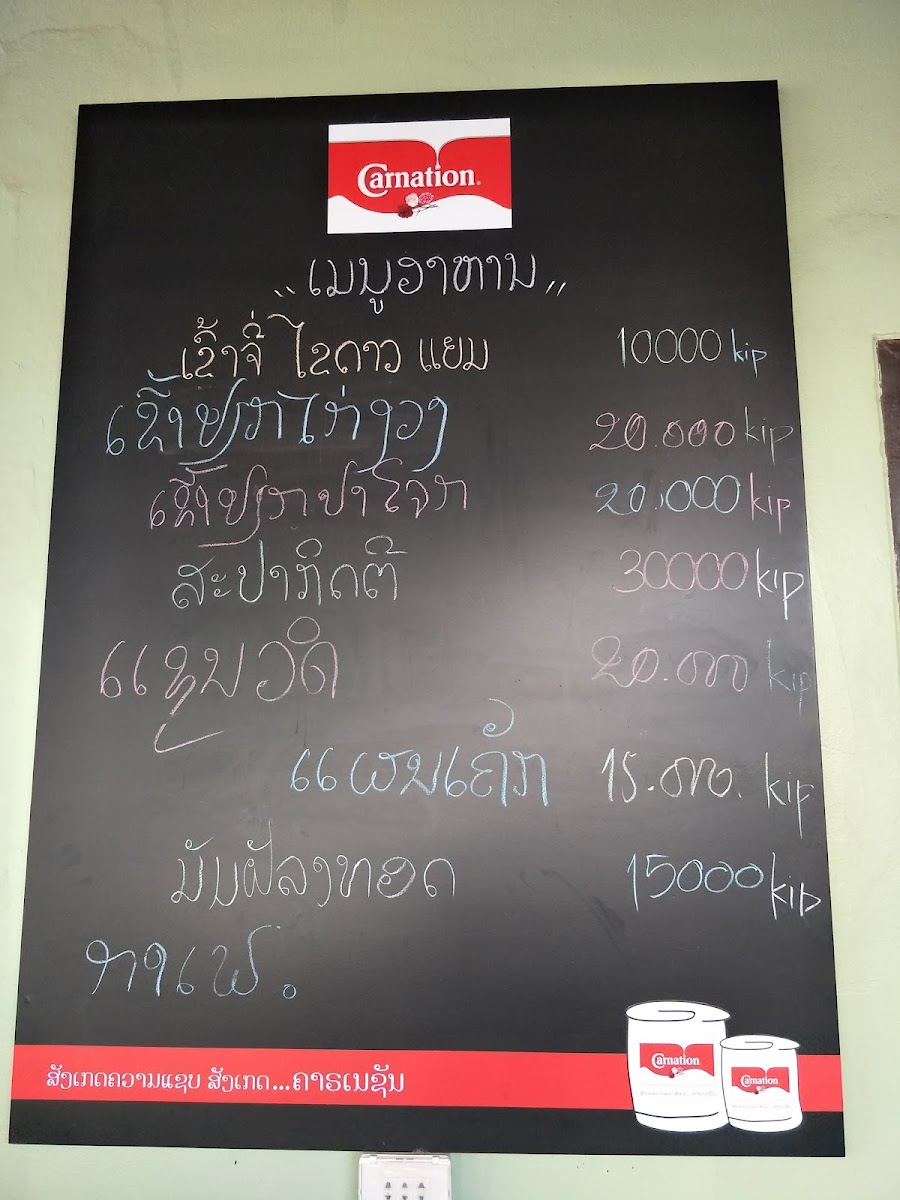 Carnation
"ເມນູອາຫານ"
ເຂົ້າຈີ່ ໄຂ່ດາວ ແຍມ 10000 kip
ເຂົ້າປຽກໄກ່ງວງ 20.000 kip
ເຂົ້າປຽກປາໂຈກ 20.000 kip
ສະປາກິດຕີ 30000 kip
ແຊນວິດ 20.000 kip
ແພນເຄັກ 15.000. kip
ມັນຝັລງທອດ 15000 kip
ກາເຟ.
ສັງເກດຄວາມແຊບ ສັງເກດ...ຄາຣເນຊັນ
Carnation
Carnation